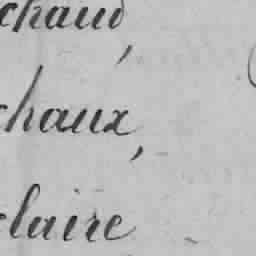 chaud,
chaux,
claire